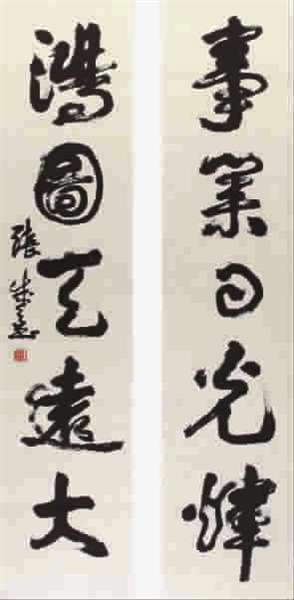 事業日光煇
鴻圖天遠大
張